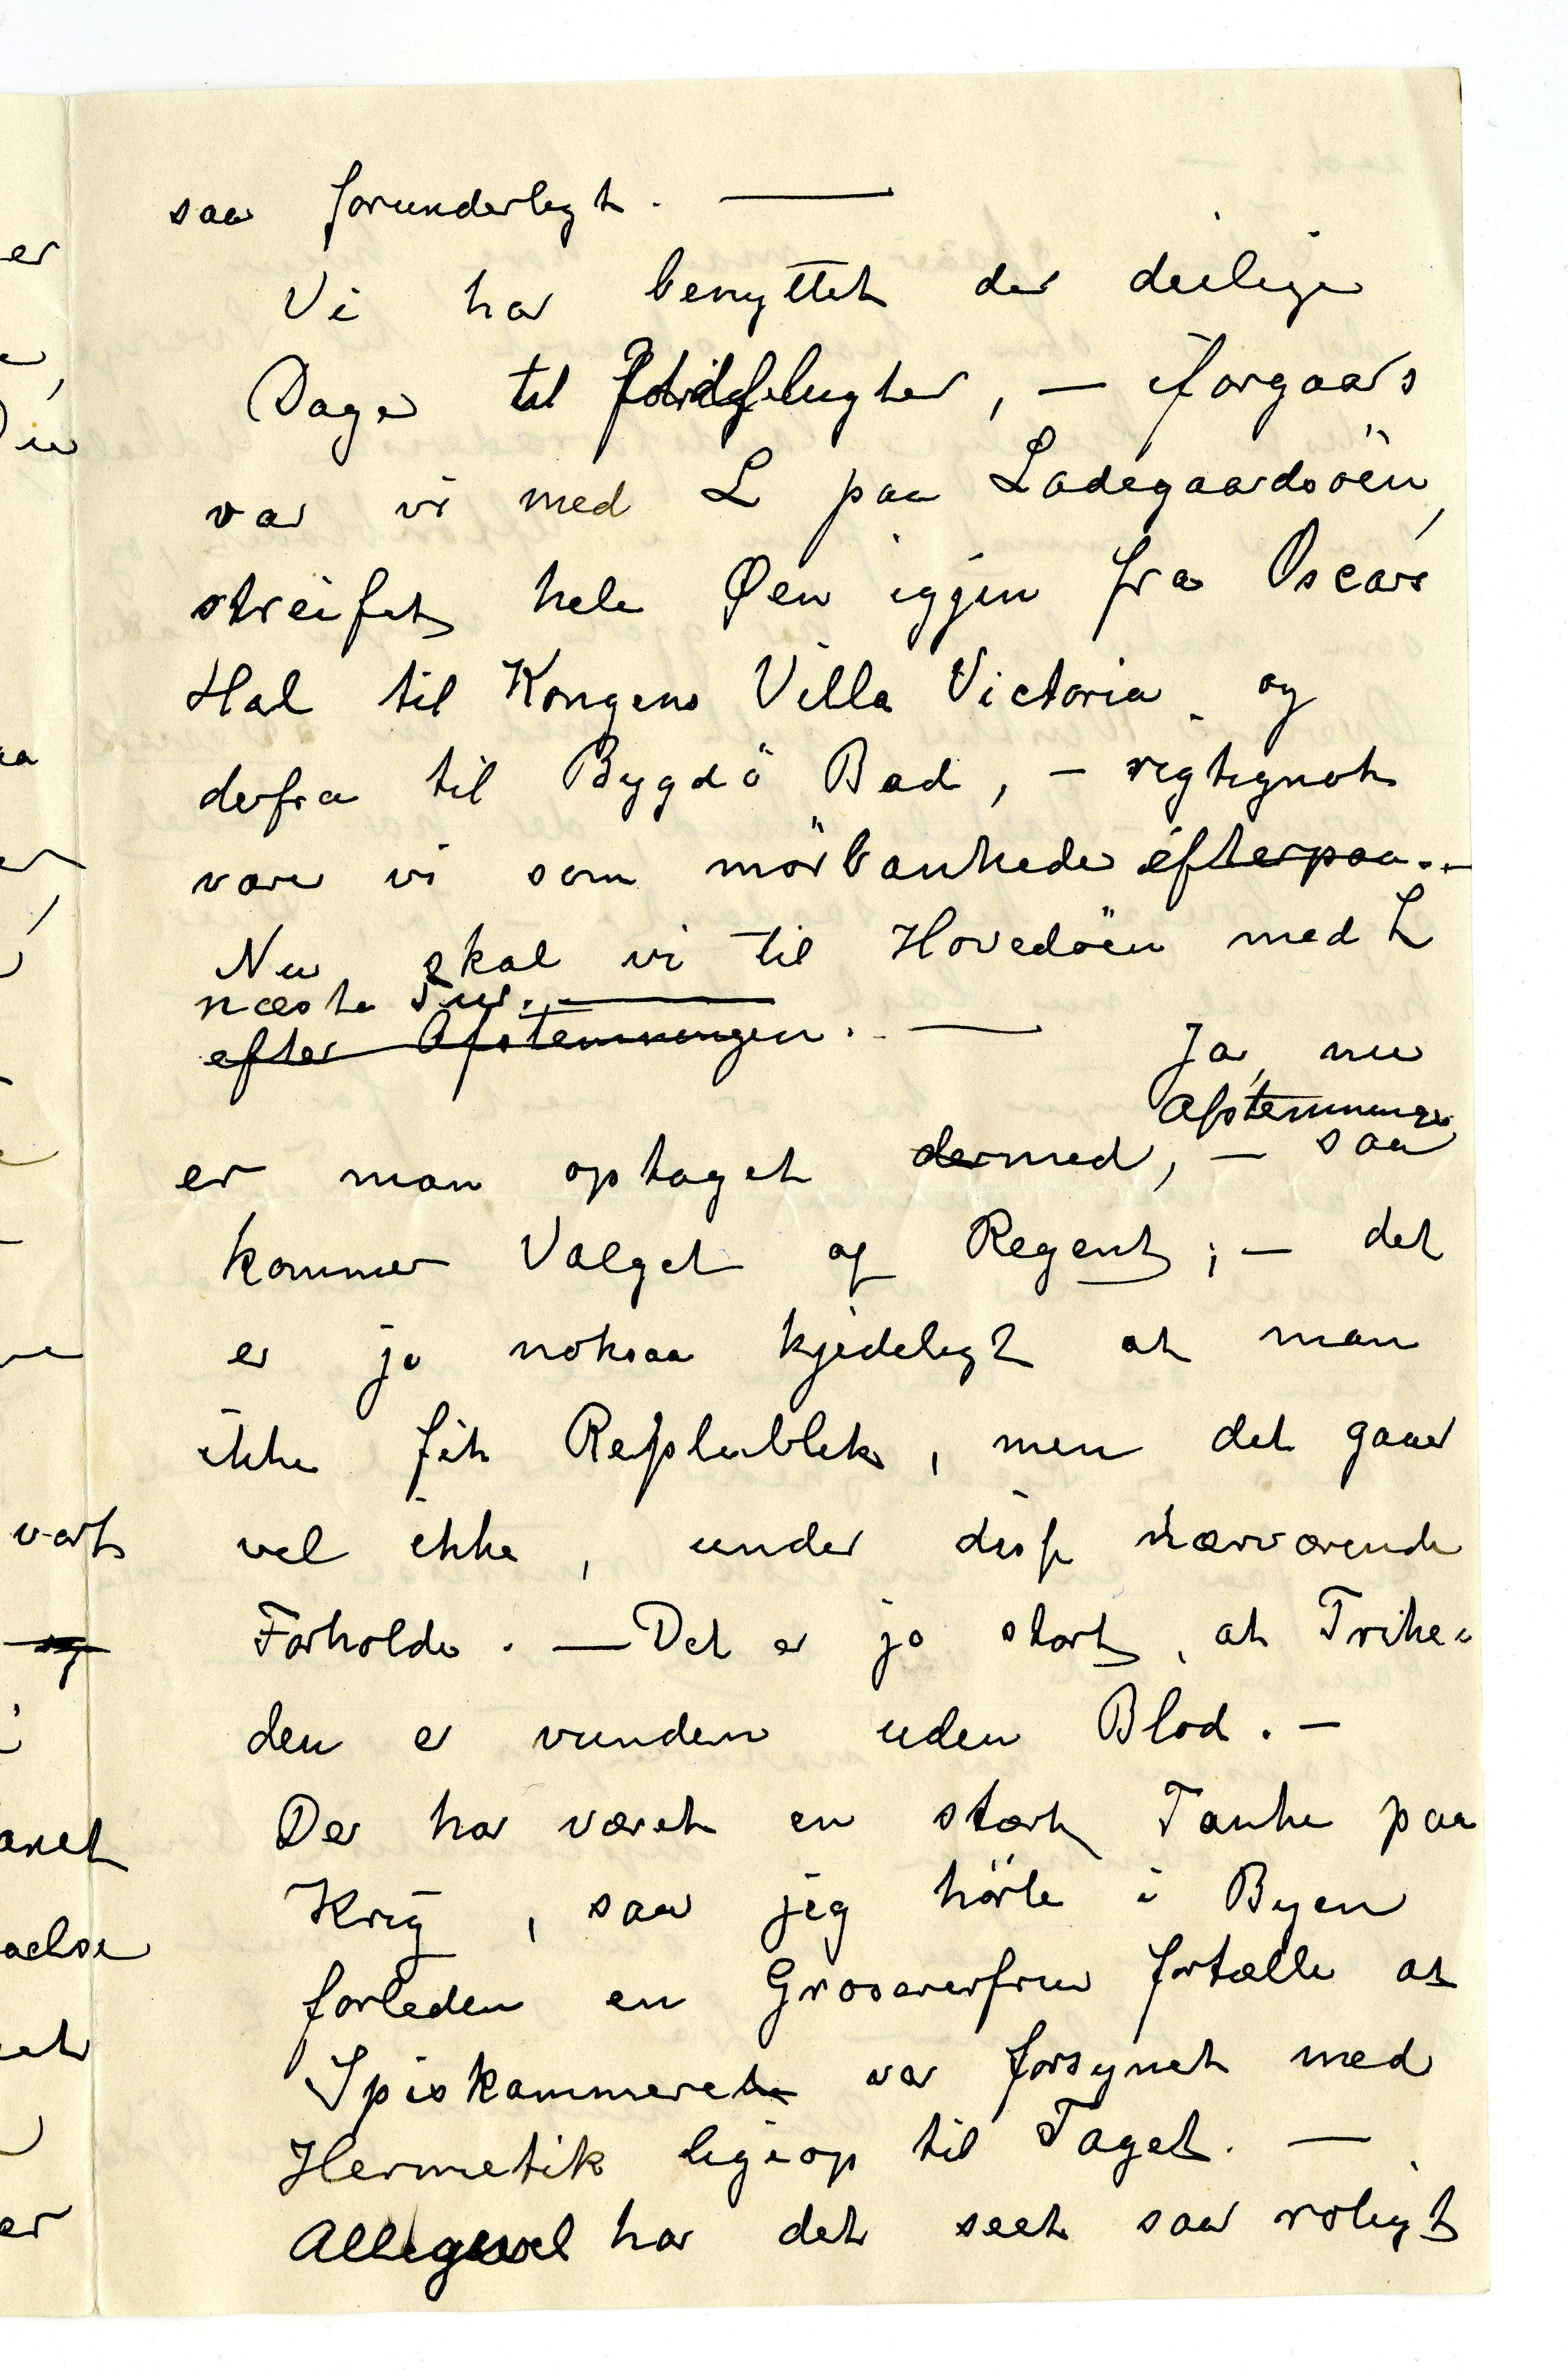 saa forunderligt. —
Vi har benyttet de deilige
Dage til Udflugter, — iforgaars
var vi med L paa Ladegaardsöen,
streifet hele Øen igjen fra Oscars
Hal til Kongens Villa Victoria og
derfra til Bygdö Bad, — rigtignok
vare vi som mörbankede efterpaa. —
Nu skal vi til Hovedöen med L
næste Tur. —
efter Afstemningen. —
Ja, nu
Afstemninge
er man optaget dermed, — saa
kommer Valget af Regent; — det
er jo noksaa kjedeligt at man
ikke fik Republik, men det gaar
vel ikke, under disse nærværende
Forholde. — Det er jo stort, at Frihe-
den er vunden uden Blod. —
Der har været en stærk Tanke paa
Krig, saa jeg hörte i Byen
forleden en Grosererfrue fortælle at
Spiskammeret var forsynet med
Hermetik ligeop til Taget. —
Alligevel har det seet saa roligt
er
Du
aa
vort
og
aelse
er